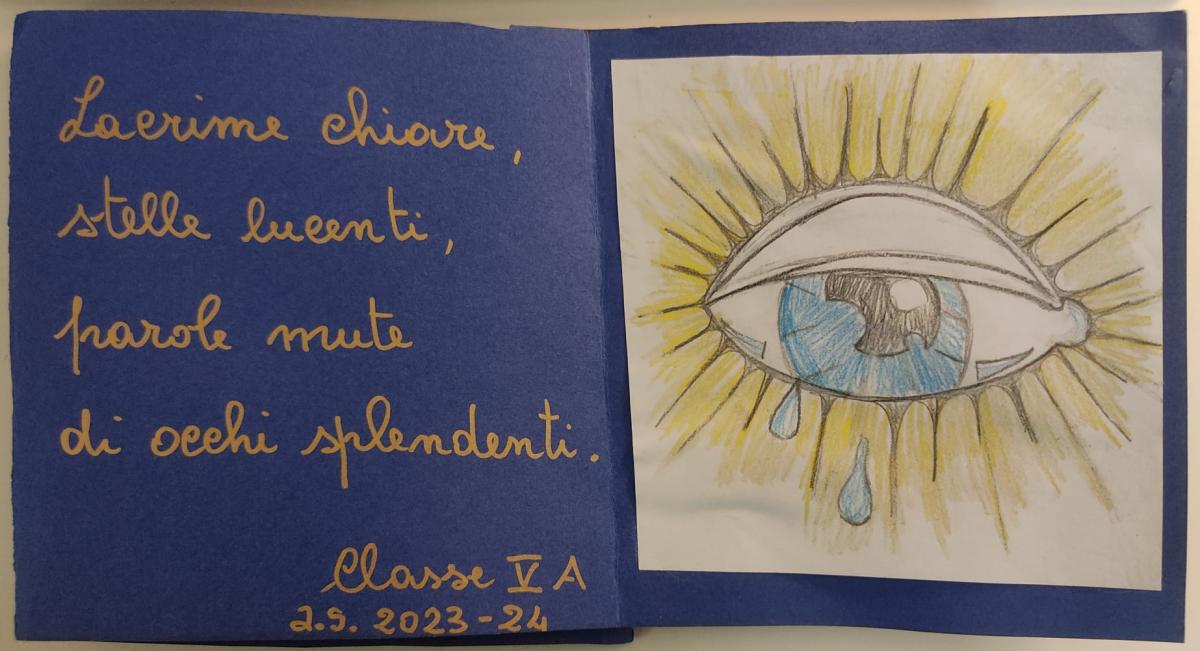 Lacrime chiare,
stelle lucenti,
parole mute
di occhi splendenti.
Classe V A
a.s. 2023-24